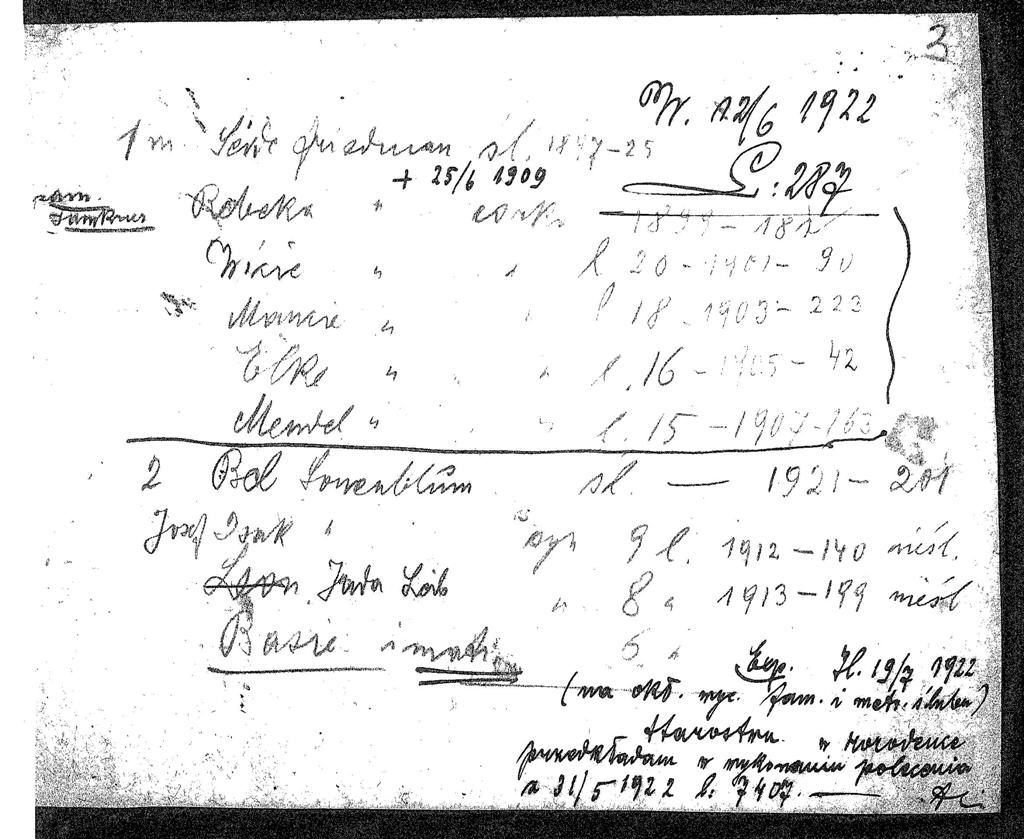 3
W. 12/6 1922
1 m Friedman sl. 1847-25
L: 287
+ 25/6 1909
Rebeka " córka 1899-181
Wicie " " l 20-1901-90
Mancie " " l 18-1903-223
Elke " " l. 16-1905-42
Mendel " " l. 15-1907-163
2 Bel Sonenblum sl. — 1921-201
Josef Isak " syn 9 l. 1912-140 nieśl.
Leon Juda Leib " 8 " 1913-199 nieśl
Basie 6 "
Exp. H. 19/7 1922
(na okł. wyc. fam. i metr. ślubu)
Starostwu w Horodence
przedkładam w wykonaniu polecenia
z 31/5 1922 l: 7407. —